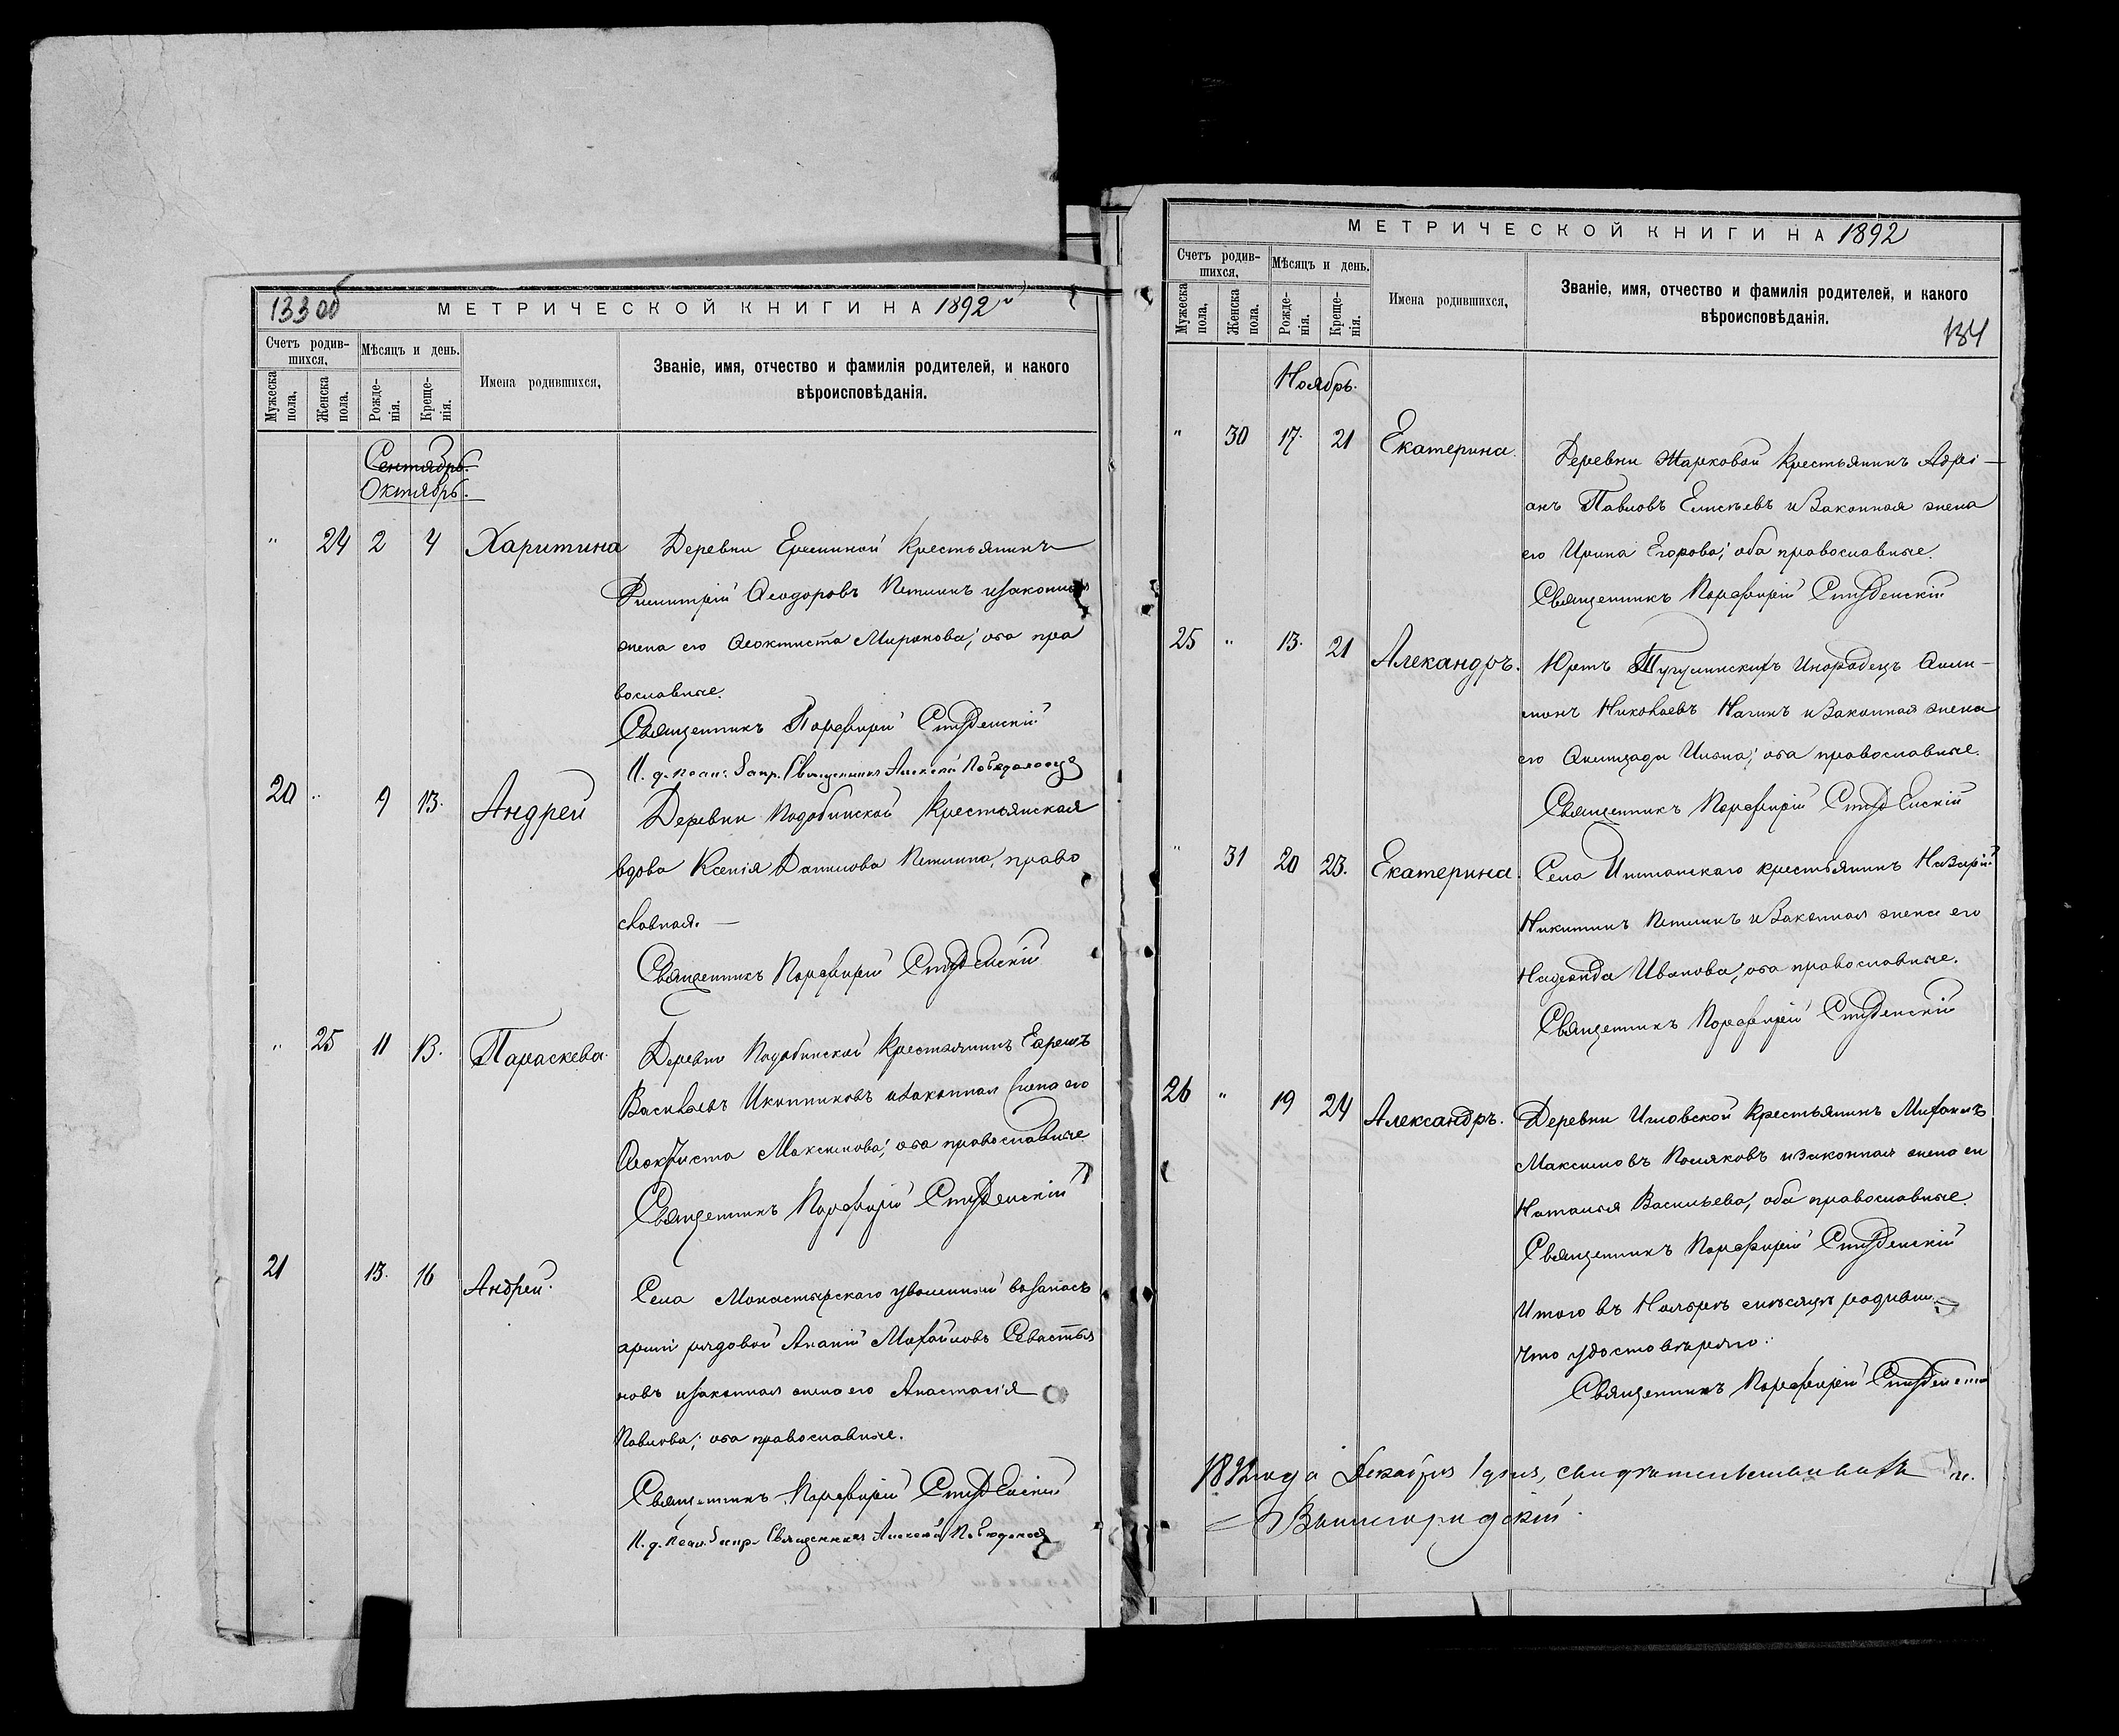 133 об
МЕТРИЧЕСКОЙ КНИГИ НА 1892
Счетъ родив-
шихся,
Мѣсяцъ и день.
Мужеска
пола.
Женска
пола.
Рожде-
нія.
Креще-
нія.
Имена родившихся,
Званіе, имя, отчество и фамилія родителей, и какого
вѣроисповѣданія.
Сентябрь.
Октябрь.
" 24 2 4 Харитина Деревни крестьянинъ
Димитрій Ѳеодоровъ изаконная
жена его Ѳеоктиста Миронова; оба пра
вославные.
Священникъ Порфирій Студенскій
Священникъ Алексѣй
20 " 9 13. Андрей Деревни Подобинской Крестьянская
вдова Ксенія Данилова право
славная. —
Священникъ Порфирій Студенскій
" 25 11 13. Параскева. Деревни Подобинской Крестьянинъ Ефремъ
Васильевъ Иконниковъ изаконная жена его
Ѳеоктиста Максимова; оба православные
Священникъ Порфирій Студенскій
21 13. 16 Андрей. Села Монастырскаго уволенный възапасъ
арміи рядовой Ананій Михайловъ Севастья
новъ изаконная жена его Анастасія
Павлова; оба православные.
Священникъ Порфирій Студенскій
Священникъ Алексѣй
МЕТРИЧЕСКОЙ КНИГИ НА 1892
Счетъ родив-
шихся,
Мѣсяцъ и день.
Мужеска
пола.
Женска
пола.
Рожде-
нія.
Креще-
нія.
Имена родившихся,
Званіе, имя, отчество и фамилія родителей, и какого
вѣроисповѣданія.
134
Ноябрь.
" 30 17. 21 Екатерина. Деревни Жарковой крестьянинъ Адрі-
анъ Павловъ Елисѣевъ и Законная жена
его Ирина Егорова; оба православные.
Священникъ Порфирій Студенскій
25 " 13. 21 Алекандръ. Юртъ Инородецъ Фили-
монъ Николаевъ и Законная жена
его оба православные.
Священникъ Порфирій Студенскій
" 31 20 23. Екатерина. Села крестьянинъ Назарій
Никитинъ и Законная жена его
Надежда Иванова, оба православные.
Священникъ Порфирій Студенскій
26 " 19 24 Александръ. Деревни Крестьянинъ Михаилъ
Максимовъ Поляковъ и законная жена его
Наталья Васильева, оба православные.
Священникъ Порфирій Студенскій
Итого въ Ноябрѣ мѣсяцѣ родивш.
Что удостовѣряю:
Священникъ Порфирій Студенскій
1892 года Декабря 1 дня, свидѣтельствовалъ